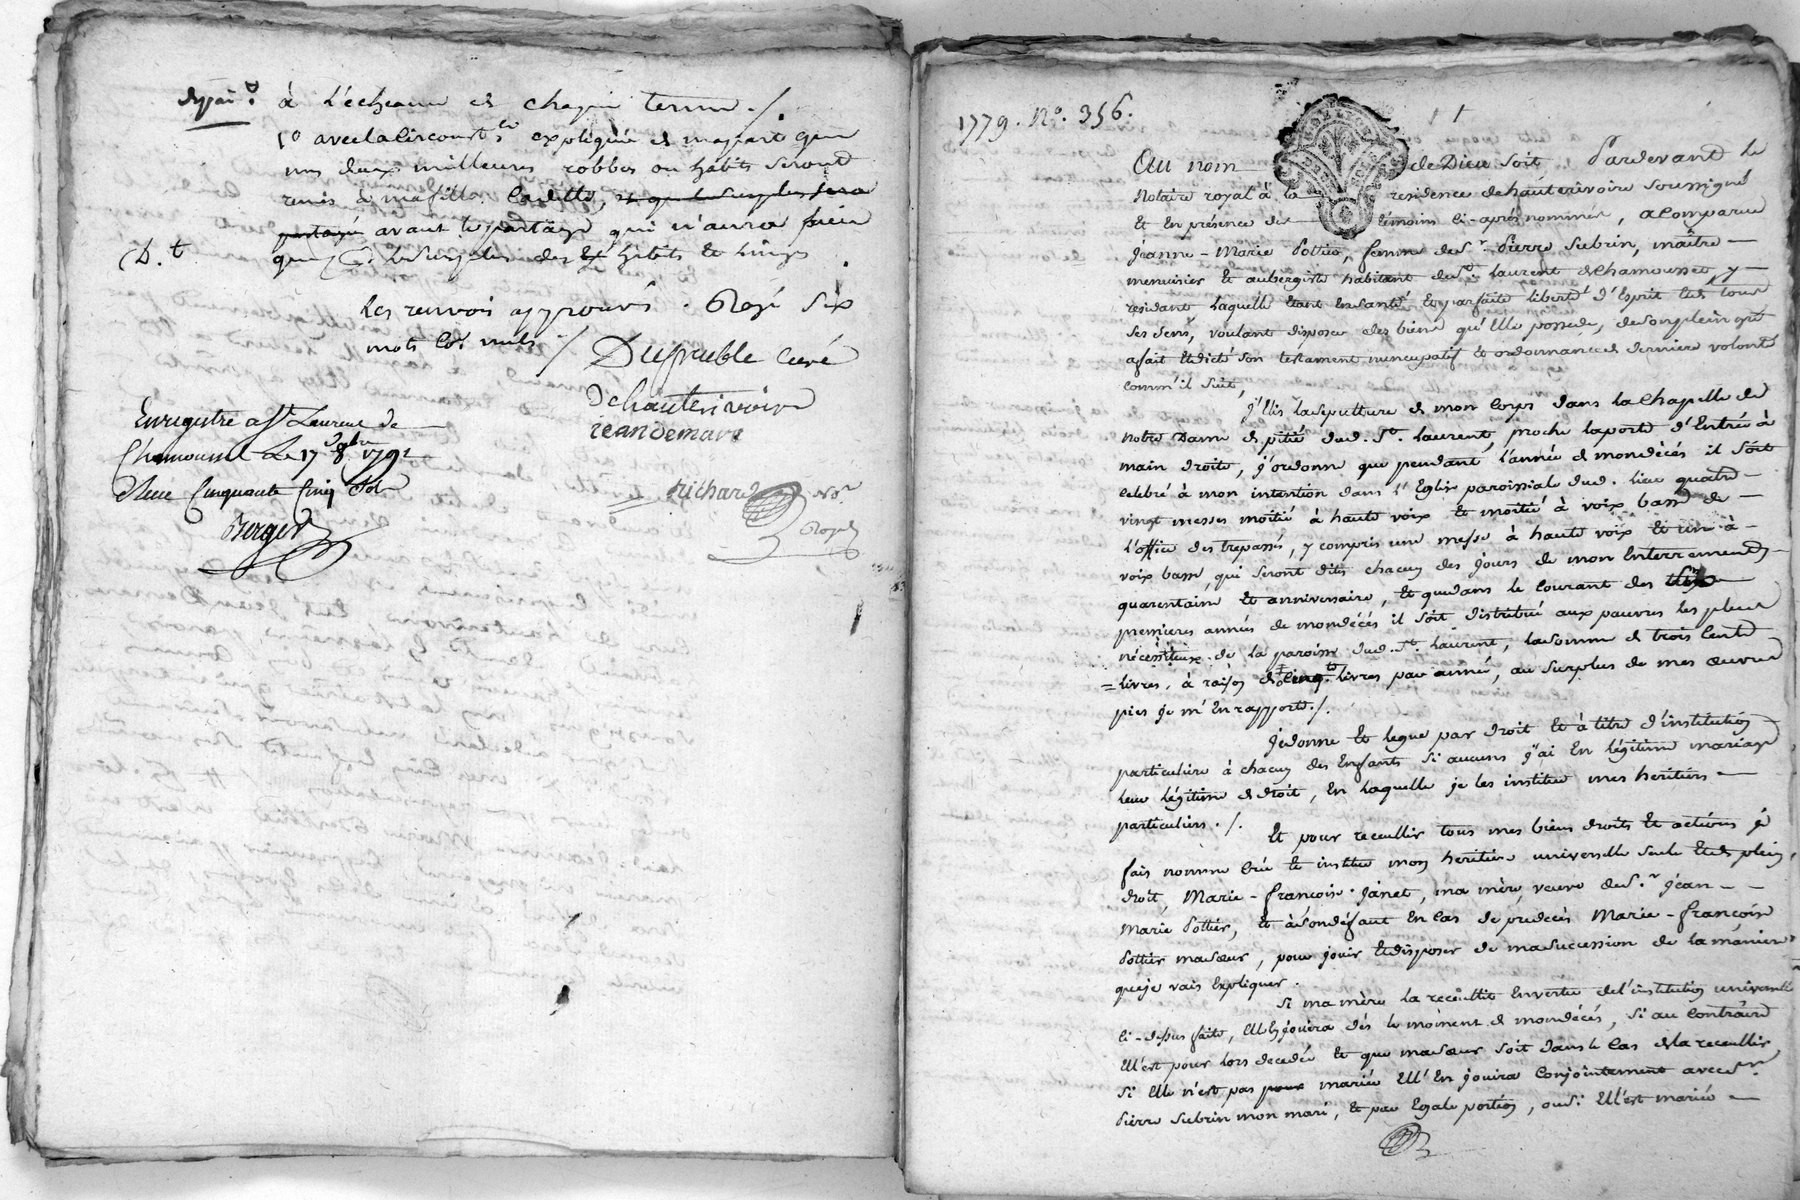 à l'écheance de chaque terme ./.
1º avec la circonst.ce expliquée de ma part que
mes deux meilleures robbes ou habits seront
remis à ma fille Cadette,
partagé avant le partage qui n'aura lieu
D. t. que le surplus des habits et linges
les renvois approuvés. Rayé six
mots nuls ./.
Dupuble Curé
d'hauterivoire
jean demare
Enregistré a St Laurent de
Chamousset Le 17 8bre 1791
Reçu Cinquante Cinq sols
Berger
Richard No.re
Royal
1779. Nº. 356.
Au nom de Dieu soit Pardevant le
Notaire royal à la residence de hauterivoire soussigné
Et En présence des témoins Ci-après nommés, a Comparue
jeanne-Marie Pottier, femme de S.r Pierre Subrin, maître
menuisier Et aubergiste habitant du S.t Laurent de Chamousset, y
residant laquelle Etant En santé, Et parfaite liberté d'Esprit Et de tous
ses sens, voulant disposer des biens qu'Elle possede, de son plein gré
a fait Et dicté son testament nuncupatif Et ordonnance de derniere volonté
comm'il suit,
j'Elis la sepulture de mon Corps dans la Chapelle de
Notre Dame de pitié dud. S.t Laurent, proche la porte d'Entrée à
main droite, j'ordonne que pendant l'année de mon décés il soit
Celebré à mon intention dans l'Eglise paroissiale dud. lieu quatre-
vingt messes moitié à haute voix Et moitié à voix basse de
l'office des trepassés, y compris une messe à haute voix Et une à
voix basse qui seront dites chacun des jours de mon Enterrement,
quarantaine Et anniversaire, Et que dans le courant des
premieres années de mon décés il soit distribué aux pauvres les plus
nécessiteux de la paroisse dud. S.t Laurent, la somme de trois Cents
livres, à raison de livres par année, au surplus de mes œuvres
pies je m'En rapporte ./.
je donne Et legue par droit Et à titre d'institution
particuliere à chacun des Enfants si aucuns j'ai En légitime mariage
leur légitime de droit, En laquelle je les institue mes heritiers
particuliers ./.
Et pour recueillir tous mes biens droits Et actions je
fais nomme Crée Et institue mon heritiere universelle seule Et de plein
droit, Marie-françoise janet, ma mère, veuve du S.r jean-
Marie Pottier, Et à son défaut En Cas de predecès Marie-françoise
Pottier ma sœur, pour jouir Et disposer de ma succession de la maniere
que je vais Expliquer.
Si ma mère la recueillit En vertu de l'institution universelle
Ci-dessus faite, Elle En jouira dès le moment de mon décés, si au Contraire
Ell'est pour lors decedée Et que ma sœur soit dans le Cas de la recueillir
si Elle n'est pas mariée Ell'En jouira Conjointement avec S.r
Pierre Subrin mon mari, Et par Egale portion, ou si Ell'est mariée